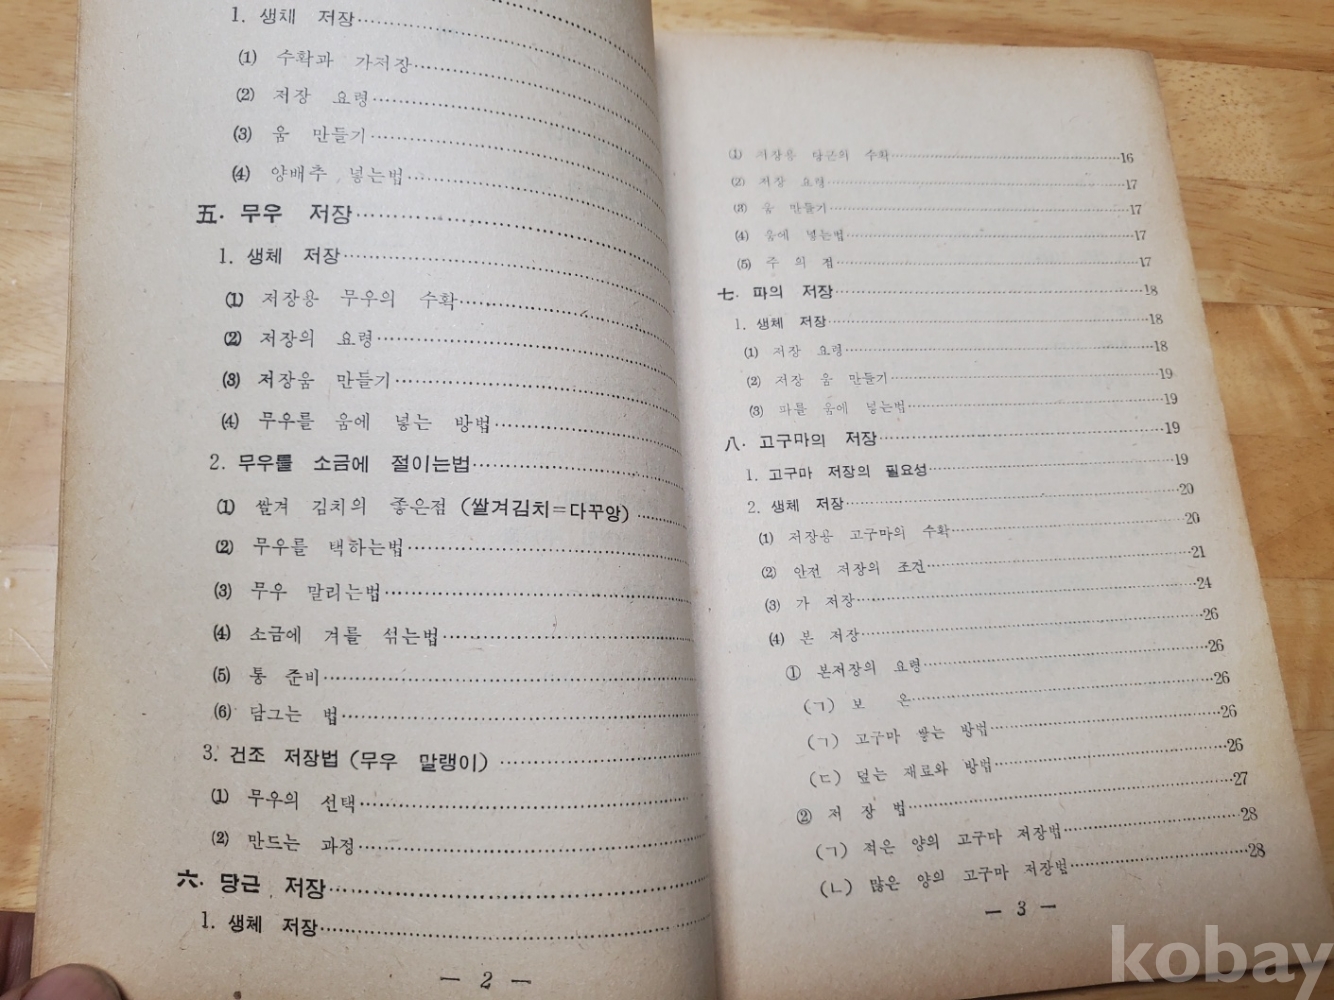 1. 생체 저장
(1) 수확과 가저장
(2) 저장 요령
(3) 움 만들기
(4) 양배추 넣는법
五. 무우 저장
1. 생체 저장
(1) 저장용 무우의 수확
(2) 저장의 요령
(3) 저장움 만들기
(4) 무우를 움에 넣는 방법
2. 무우를 소금에 절이는법
(1) 쌀겨 김치의 좋은점 (쌀겨김치=다꾸앙)
(2) 무우를 택하는법
(3) 무우 말리는법
(4) 소금에 겨를 섞는법
(5) 통 준비
(6) 담그는 법
3. 건조 저장법 (무우 말랭이)
(1) 무우의 선택
(2) 만드는 과정
六. 당근 저장
1. 생체 저장
— 2 —
(1) 저장용 당근의 수확 16
(2) 저장 요령 17
(3) 움 만들기 17
(4) 움에 넣는법 17
(5) 주 의 점 17
七. 파의 저장 18
1. 생체 저장 18
(1) 저장 요령 18
(2) 저장 움 만들기 19
(3) 파를 움에 넣는법 19
八. 고구마의 저장 19
1. 고구마 저장의 필요성 19
2. 생체 저장 20
(1) 저장용 고구마의 수확 20
(2) 안전 저장의 조건 21
(3) 가 저장 24
(4) 본 저장 26
① 본저장의 요령 26
(ㄱ) 보 온 26
(ㄱ) 고구마 쌓는 방법 26
(ㄷ) 덮는 재료와 방법 26
② 저 장 법 27
(ㄱ) 적은 양의 고구마 저장법 28
(ㄴ) 많은 양의 고구마 저장법 28
— 3 —
kobay